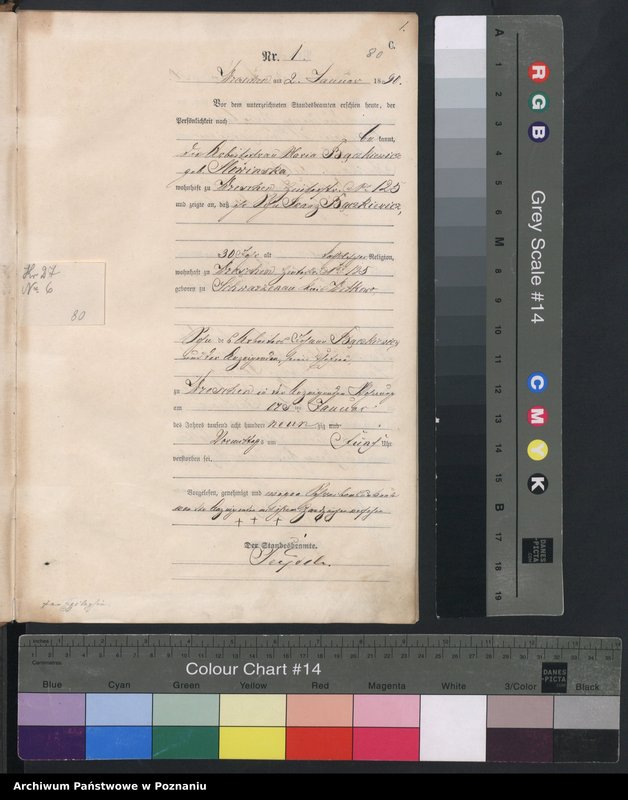 1.
C.
80
Nr. 1.
Wreschen am 2. Januar 1890.
Vor dem unterzeichneten Standesbeamten erschien heute, der
Persönlichkeit nach
be kannt,
die Arbeiterfrau Maria Bączkiewicz
geb. Słowinska
wohnhaft zu Wreschen No. 125
und zeigte an, daß ihr Sohn Franz Bączkiewicz,
30 alt katholischer Religion,
wohnhaft zu Wreschen No. 125
geboren zu Schwarzenau Witkowo
Sohn des Arbeiters Johann Bączkiewicz
und der Anzeigenden,
zu Wreschen in der Anzeigenden Wohnung
am Januar
des Jahres tausend acht hundert neunzig und
Vormittags um fünf Uhr
verstorben sei.
Vorgelesen, genehmigt und wegen
von der Anzeigenden mit ihrem Handzeichen versehen
+ + +
Der Standesbeamte.
Nr 27
No 6
80
A 1 2 3 4 5 6 M 8 9 10 11 12 13 14 15 B 17 18 19
R G B
Grey Scale #14
C M Y K
DANES
PICTA
.COM
Inches
Centimetres
Colour Chart #14
DANES
PICTA
.COM
Blue Cyan Green Yellow Red Magenta White 3/Color Black
Archiwum Państwowe w Poznaniu